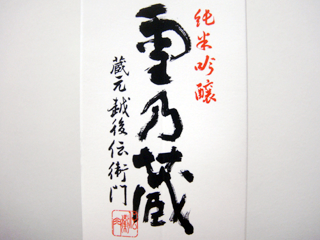 純米吟醸
雪乃蔵
蔵元越後伝衛門